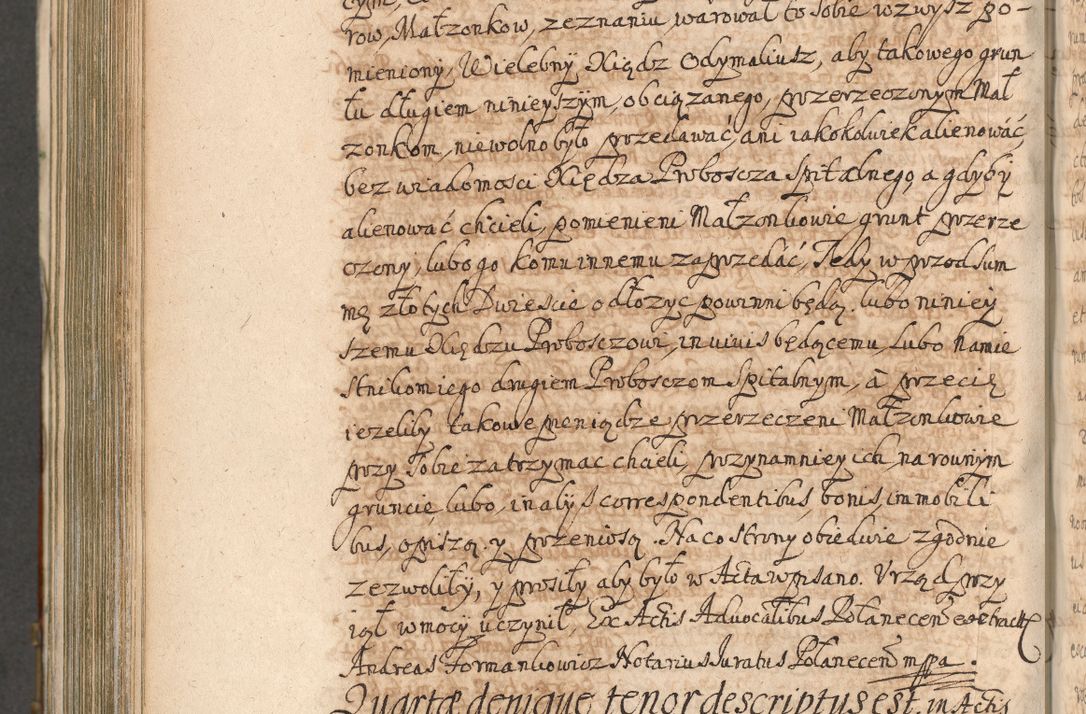 row, Małzonkow, zeznaniu warował to sobie wzwysz po-
mieniony, Wielebny Xiądz Odymaliusz, aby takowego grun
tu długiem ninieyszym, obciązanego, przerzeczonym Mał
zonkom, niewolno było przedawać, ani iakokolwiek alienować,
bez wiadomosci Xiędza Proboscza Spitalnego, a gdyby
alienować chcieli, pomienieni Małzonkowie grunt przerze
czony, lubo go komu innemu zaprzedać, Tedy wprzod Sum
mę złotych Dwiescie odłozyc powinni będą, lubo niniey
szemu Xiędzu Proboszczowi, in vivis będącemu, lubo Namie
stnikom iego drugiem Probosczom Spitalnym, à przecię
iezeliby takowe pieniądze przerzeczeni Małzonkowie
przy Sobie zatrzymac chcieli, przynamniey ich, na rownym
gruncie, lubo, in alÿs correspondentibus, bonis, immobili
bus, opiszą, y przeniosą. Na co strony obiedwie zgodnie
zezwoliły, y prosiły aby było w Acta wpisano. Vrząd przy
iął w mocy uczynił, Ex Actis Advocalibus Połanecen̄ extract
Andreas Formankowicz Notarius Iuratus Połanecen̄ mppa.
Quartæ denique tenor descriptus est, in Actis